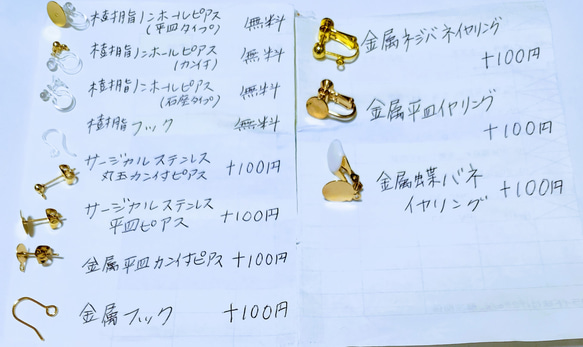 樹脂ノンホールピアス 無料
(平皿タイプ)
樹脂ノンホールピアス 無料
(カン付)
樹脂ノンホールピアス 無料
(石座タイプ)
樹脂フック 無料
サージカルステンレス +100円
丸玉カン付ピアス
サージカルステンレス +100円
平皿ピアス
金属平皿カン付ピアス +100円
金属フック +100円
金属ネジバネイヤリング
+100円
金属平皿イヤリング
+100円
金属蝶バネ +100円
イヤリング